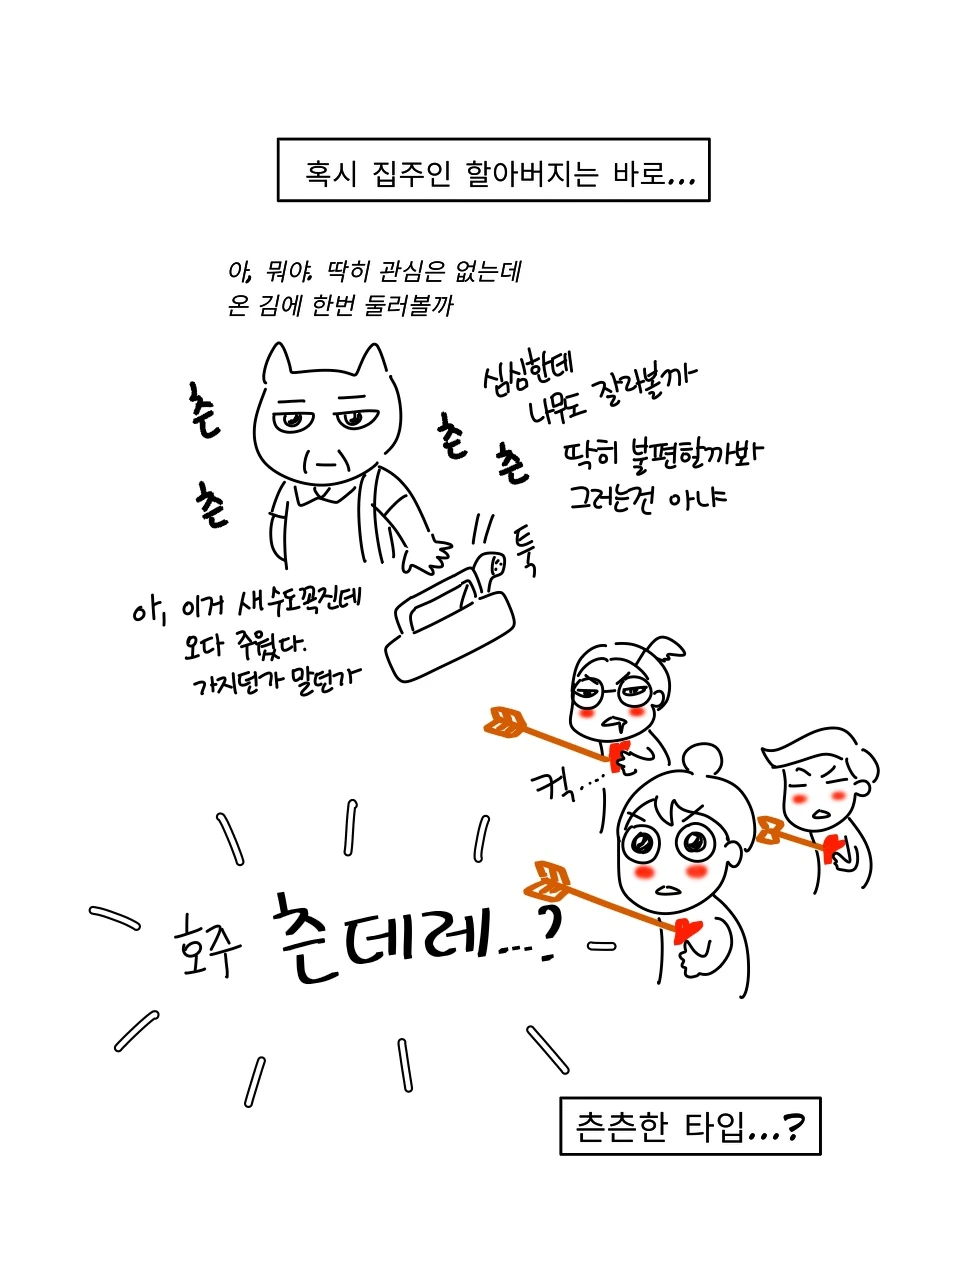 혹시 집주인 할아버지는 바로...
아, 뭐야. 딱히 관심은 없는데
온 김에 한번 둘러볼까
츤
츤
츤
츤
심심한데
나무도 잘라볼까
딱히 불편할까봐
그러는건 아냐
툭
아, 이거 새 수도꼭진데
오다 주웠다.
가지던가 말던가
컥......
호주 츤데레...?
츤츤한 타입...?